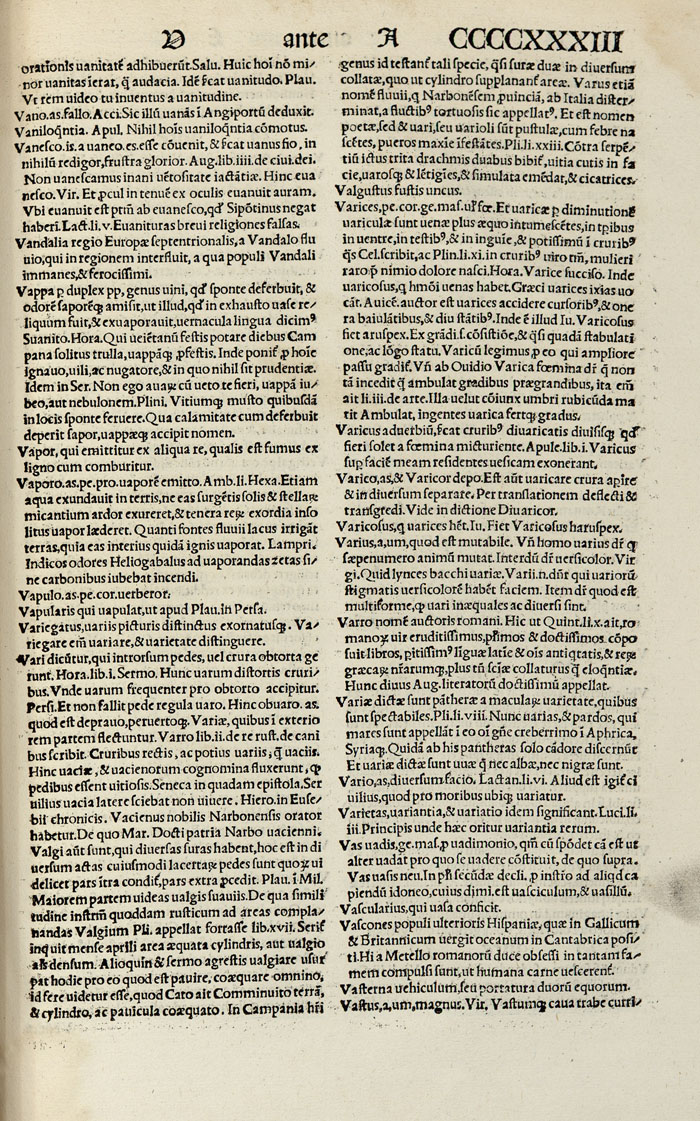 V ante A CCCCXXXIII
orationis uanitatē adhibuerūt. Salu. Huic hoī nō mi⸗
nor uanitas īerat, q̄ audacia. Idē ſ̄cat uanitudo. Plau.
Vt rem uideo tu inuentus a uanitudine.
Vano. as. fallo. Acci. Sic illū uanās ī Angiportū deduxit.
Vaniloqn̄tia. Apul. Nihil hoīs uaniloqn̄tia cōmotus.
Vaneſco. is. a uaneo. es. eſſe cōuenit, & ſ̄cat uanus fio, in
nihilū redigor, fruſtra glorior. Aug. lib. iiii. de ciui. dei.
Non uaneſcamus inani uētoſitate iactātiæ. Hinc eua
neſco. Vir. Et ꝓcul in tenuē ex oculis euanuit auram.
Vbi euanuit eſt ptm̄ ab euaneſco, qd̄ Sipōtinus negat
haberi. Lact. li. v. Euanituras breui religiones falſas.
Vandalia regio Europæ ſeptentrionalis, a Vandalo flu
uio, qui in regionem interfluit, a qua populi Vandali
immanes, & ferociſſimi.
Vappa p duplex pp, genus uini, qd̄ ſponte deferbuit, &
odorē ſaporēq; amiſit, ut illud, qd̄ in exhauſto uaſe re⸗
liquum fuit, & exuaporauit, uernacula lingua dicimꝰ
Suanito. Hora. Qui ueiētanū feſtis potare diebus Cam
pana ſolitus trulla, uappāq; ꝓfeſtis. Inde ponit̄ p hoīe
ignauo, uili, ac nugatore, & in quo nihil ſit prudentiæ.
Idem in Ser. Non ego auaꝝ cū ueto te fieri, uappā iu⸗
beo, aut nebulonem. Plini. Vitiumq; muſto quibuſdā
in locis ſponte feruere. Qua calamitate cum deferbuit
deperit ſapor, uappæq; accipit nomen.
Vapor, qui emittitur ex aliqua re, qualis eſt fumus ex
ligno cum comburitur.
Vaporo. as. pe. pro. uaporē emitto. Amb. li. Hexa. Etiam
aqua exundauit in terris, ne eas ſurgētis ſolis & ſtellaꝝ
micantium ardor exureret, & tenera reꝝ exordia inſo
litus uapor læderet. Quanti fontes fluuii lacus irrigāt
terras, quia eas interius quidā ignis uaporat. Lampri.
Indicos odores Heliogabalus ad uaporandas zetas ſi⸗
ne carbonibus iubebat incendi.
Vapulo. as. pe. cor. uerberor.
Vapularis qui uapulat, ut apud Plau. in Perſa.
Variegatus, uariis picturis diſtinctus exornatuſq;. Va⸗
riegare em̄ uariare, & uarietate diſtinguere.
Vari dicūtur, qui introrſum pedes, uel crura obtorta ge
runt. Hora. lib. i. Sermo. Hunc uarum diſtortis cruri⸗
bus. Vnde uarum frequenter pro obtorto accipitur.
Perſi. Et non fallit pede regula uaro. Hinc obuaro. as.
quod eſt deprauo, peruertoq;. Variæ, quibus ī exterio
rem partem flectuntur. Varro lib. ii. de re ruſt. de cani
bus ſcribit. Cruribus rectis, ac potius uariis, q̄ uaciis.
Hinc uaciæ, & uacienorum cognomina fluxerunt, ꝙ
pedibus eſſent uitioſis. Seneca in quadam epiſtola. Ser
uilius uacia latere ſciebat non uiuere. Hiero. in Euſe⸗
bii chronicis. Vacienus nobilis Narbonenſis orator
habetur. De quo Mar. Docti patria Narbo uacienni.
Valgi aūt ſunt, qui diuerſas ſuras habent, hoc eſt in di
uerſum actas cuiuſmodi lacertaꝝ pedes ſunt quoꝝ ui
delicet pars ītra condit̄, pars extra ꝓcedit. Plau. ī Mil.
Maiorem partem uideas ualgis ſuauiis. De qua ſimili
tudine inſtrm̄ quoddam ruſticum ad areas compla⸗
nandas Valgium Pli. appellat fortaſſe lib. xvii. Seriſ
inquit menſe aprili area æquata cylindris, aut ualgio
ad denſum. Alioquin & ſermo agreſtis ualgiare uſur
pat hodie pro eo quod eſt pauire, coæquare omnino,
id fere uidetur eſſe, quod Cato ait Comminuito terrā,
& cylindro, ac pauicula coæquato. In Campania hr̄i
genus id teſtant̄ tali ſpecie, q̄ſi ſuræ duæ in diuerſum
collatæ, quo ut cylindro ſupplanant̄ areæ. Varus etiā
nomē fluuii, q Narbonēſem ꝓuinciā, ab Italia diſter⸗
minat, a fluctibꝰ tortuoſis ſic appellatꝰ. Et eſt nomen
poetæ, ſed & uari, ſeu uarioli ſūt puſtulæ, cum febre na
ſcētes, pueros maxie īfeſtātes. Pli. li. xxiii. Cōtra ſerpē⸗
tiū ictus trita drachmis duabus bibit̄, uitia cutis in fa
cie, uaroſq; & lētigīes, & ſimulata emēdat, & cicatrices.
Valguſtus fuſtis uncus.
Varices, pe. cor. ge. maſ. ul̄ fœ. Et uaricæ p diminutionē
uariculæ ſunt uenæ plus æquo intumeſcētes, in tpibus
in uentre, in teſtibꝰ, & in inguīe, & potiſſimū ī cruribꝰ
q̄s Cel. ſcribit, ac Plin. li. xi. in cruribꝰ uiro tm̄, mulieri
raro. p̄ nimio dolore naſci. Hora. Varice ſucciſo. Inde
uaricoſus, q hmōi uenas habet. Græci uarices ixias uo
cāt. Auicē. auctor eſt uarices accidere curſoribꝰ, & one
ra baiulātibus, & diu ſtātibꝰ. Inde ē illud Iu. Varicoſus
fiet aruſpex. Ex grādi. ſ. cōſiſtiōe, & q̄ſi quadā ſtabulati
one, ac lōgo ſtatu. Varicū legimus, p eo qui ampliore
paſſu gradit̄. Vn̄ ab Ouidio Varica fœmina dr̄ q̄ non
tā incedit q̄ ambulat gradibus prægrandibus, ita em̄
ait li. iii. de arte. Illa uelut cōiunx umbri rubicūda ma
rit Ambulat, ingentes uarica fertq; gradus.
Varicus aduerbiū, ſ̄cat cruribꝰ diuaricatis diuiſiſq; qd̄
fieri ſolet a fœmina micturiente. Apule. lib. i. Varicus
ſup faciē meam reſidentes ueſicam exonerant.
Varico, as, & Varicor depo. Eſt aūt uaricare crura apīre
& in diuerſum ſeparare. Per tranſlationem deflecti &
tranſgredi. Vide in dictione Diuaricor.
Varicoſus, q uarices hēt. Iu. Fiet Varicoſus haruſpex.
Varius, a, um, quod eſt mutabile. Vn̄ homo uarius dr̄ q
ſæpenumero animū mutat. Interdū dr̄ uerſicolor. Vir
gi. Quid lynces bacchi uariæ. Varii. n. dn̄r qui uarioꝝ
ſtigmatis uerſicolorē habēt faciem. Item dr̄ quod eſt
multiforme, q uari inæquales ac diuerſi ſint.
Varro nomē auctoris romani. Hic ut Quint. li. x. ait, ro
manoꝝ uir eruditiſſimus, plīmos & doctiſſimos cōpo
ſuit libros, pitiſſimꝰ liguæ latīæ & oīs antiqtatis, & reꝝ
græcaꝝ nr̄arumq;, plus tn̄ ſciæ collaturus q̄ eloqn̄tiæ.
Hunc diuus Aug. literatorū doctiſſimū appellat.
Variæ dictæ ſunt pātheræ a maculaꝝ uarietate, quibus
ſunt ſpectabiles. Pli. li. viii. Nunc uarias, & pardos, qui
mares ſunt appellāt ī eo oī gn̄e creberrimo ī Aphrica,
Syriaq;. Quidā ab his pantheras ſolo cādore diſcernūt
Et uariæ dictæ ſunt uuæ q̄ nec albæ, nec nigræ ſunt.
Vario, as, diuerſum facio. Lactan. li. vi. Aliud eſt igit̄ ci
uilius, quod pro moribus ubiq; uariatur.
Varietas, uariantia, & uariatio idem ſignificant. Luci. li.
iii. Principis unde hæc oritur uariantia rerum.
Vas uadis, ge. maſ. p uadimonio, qm̄ cū ſpōdet cā eſt ut
alter uadat pro quo ſe uadere cōſtituit, de quo ſupra.
Vas uaſis neu. In pn̄ī ſecūdæ decli. p inſtro ad aliqd ca
piendū idoneo, cuius dimi. eſt uaſciculum, & uaſillū.
Vaſcularius, qui uaſa conficit.
Vaſcones populi ulterioris Hiſpaniæ, quæ in Gallicum
& Britannicum uergit oceanum in Cantabrica poſi⸗
ti. Hi a Metello romanorū duce obſeſſi in tantam fa⸗
mem compulſi ſunt, ut humana carne ueſcerent̄.
Vaſterna uehiculum, ſeu portatura duorū equorum.
Vaſtus, a, um, magnus. Vir. Vaſtumq; caua trabe curri⸗